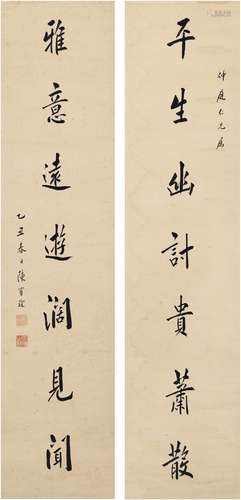 平生幽計貴蕭散
仲庭仁兄屬
雅意遠遊闊見聞
乙丑春日陳寶琛